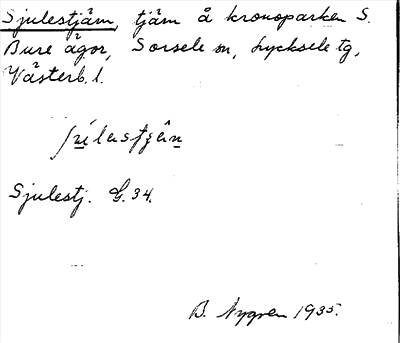 Sjulestjärn, tjärn å kronoparken S.
Bure ägor, Sorsele sn, Lycksele tg,
Västerb. l.
Sjulestj. G. 34.
B. Nygren 1935.